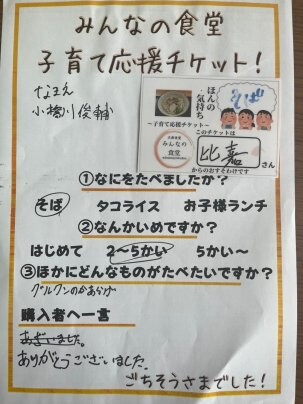 みんなの食堂
子育て応援チケット!
なまえ
小橋川俊輔
ほんの
気持ち
そば
~子育て応援チケット~
みんなの
食堂
このチケットは
比嘉 さん
からのおすそわけです
①なにをたべましたか?
そば タコライス お子様ランチ
②なんかいめですか?
はじめて 2~5かい 5かい~
③ほかにどんなものがたべたいですか?
グルクンのからあげ
購入者へ一言
ありがとうございました。
ごちそうさまでした!